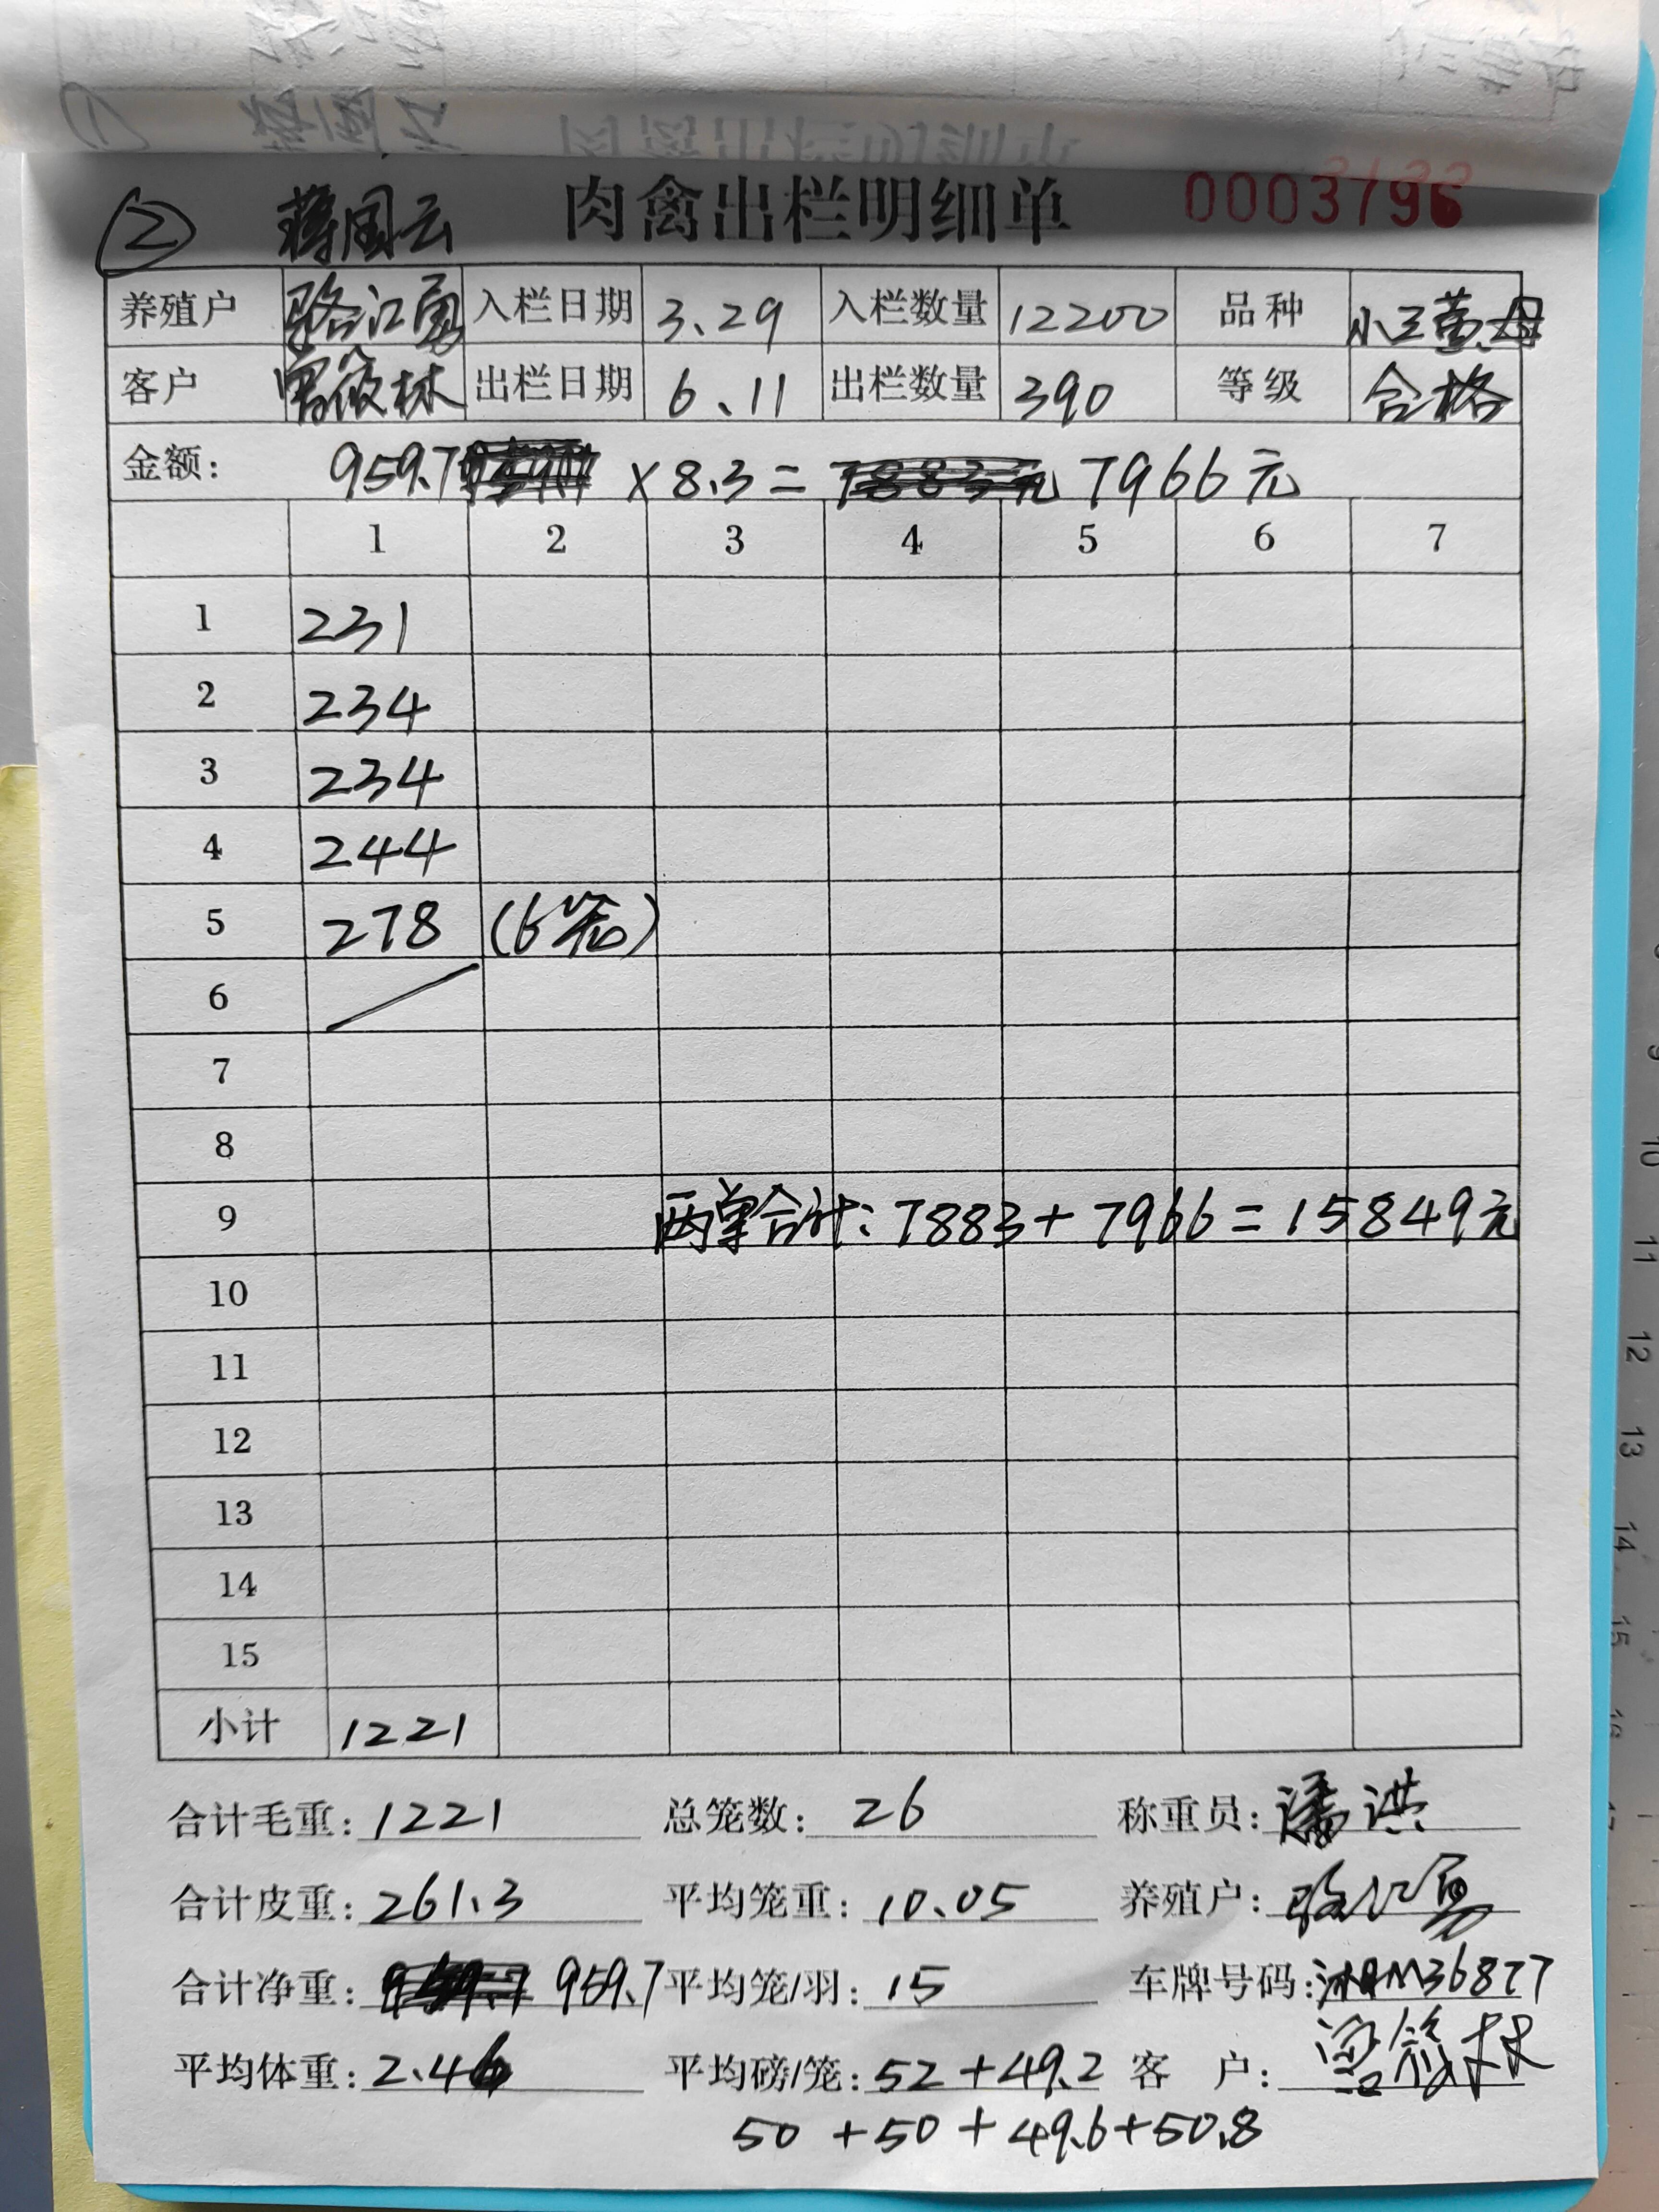 ② 蒋国云 肉禽出栏明细单 0003796
养殖户 骆江勇 入栏日期 3.29 入栏数量 12200 品种 小三黄母
客户 曾筱林 出栏日期 6.11 出栏数量 390 等级 合格
金额: 959.7 ×8.3= 7966元
1 2 3 4 5 6 7
1 231
2 234
3 234
4 244
5 278 (6笼)
6
7
8
9 两单合计:7883+7966=15849元
10
11
12
13
14
15
小计 1221
合计毛重: 1221 总笼数: 26 称重员: 潘洪
合计皮重: 261.3 平均笼重: 10.05 养殖户: 骆江勇
合计净重: 959.7 平均笼/羽: 15 车牌号码:
平均体重: 2.46 平均磅/笼: 52+49.2 客 户: 曾筱林
50+50+49.6+50.8